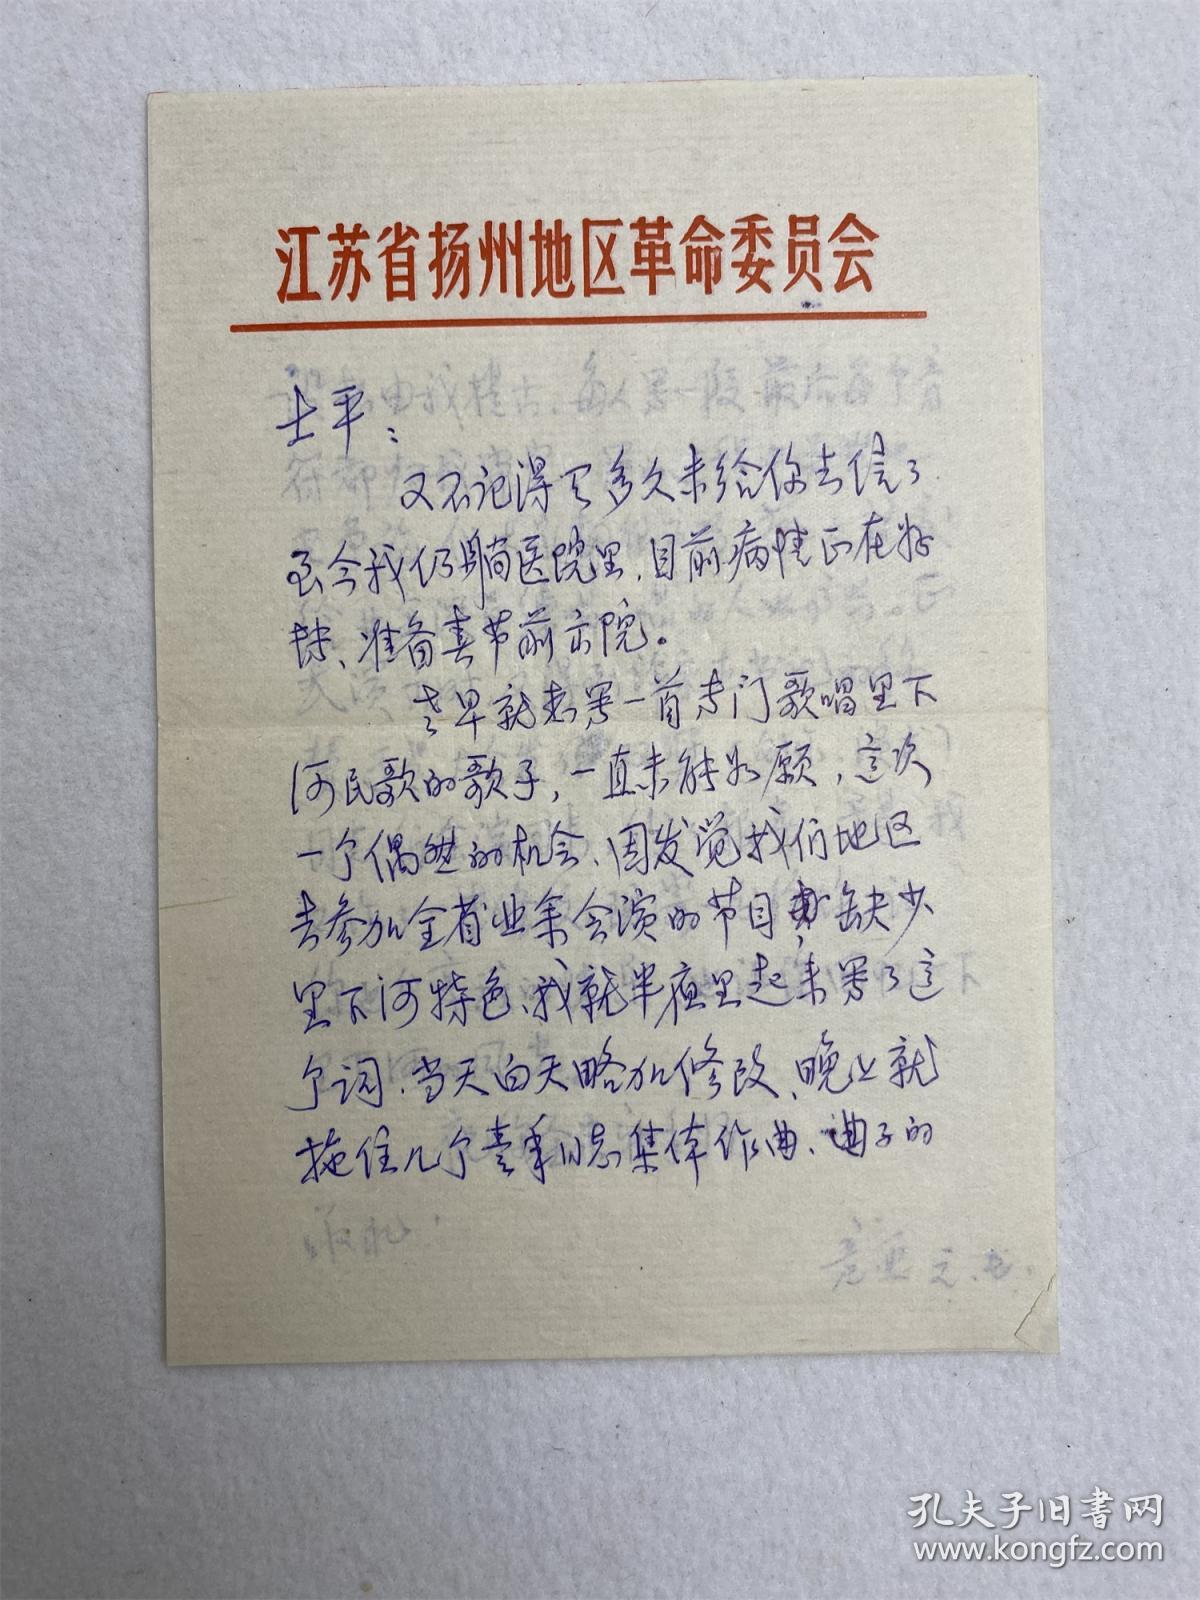 江苏省扬州地区革命委员会
士平：
又不记得有多久未给你去信了.
至今我仍躺医院里，目前病情正在好
转、准备春节前出院。
老早就想写一首专门歌唱里下
河民歌的歌子，一直未能如愿，这次
一个偶然的机会、因发觉我们地区
去参加全省业余会演的节目缺少
里下河特色、我就半夜里起来写了这
个词、当天白天略加修改、晚上就
拖住几个青年同志集体作曲、曲子的
孔夫子旧书网
www.kongfz.com